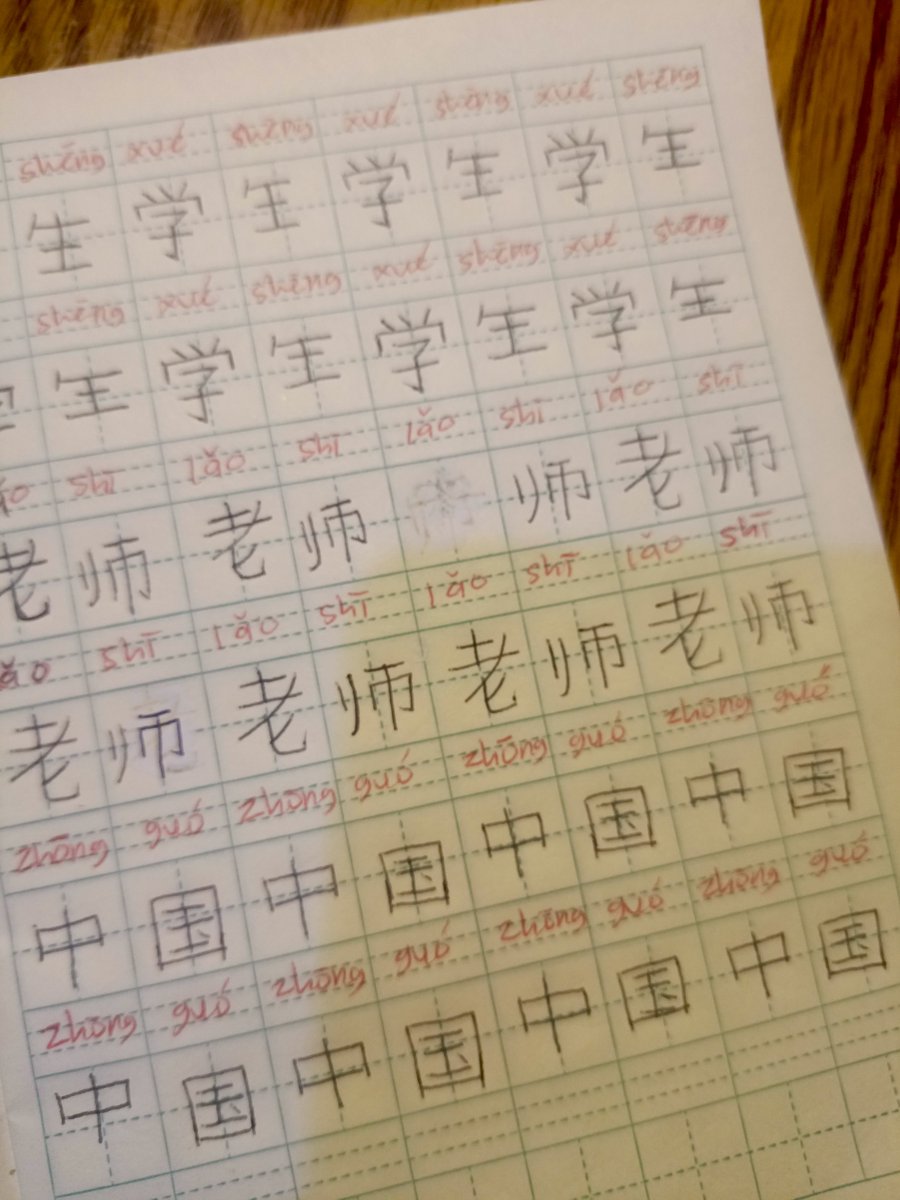 shēng xué shēng xué shēng xué shēng
生 学 生 学 生 学 生
shēng xué shēng xué shēng xué shēng
生 学 生 学 生 学 生
ǎo shī lǎo shī lǎo shī lǎo shī
老 师 老 师 师 老 师
ǎo shī lǎo shī lǎo shī lǎo shī
老 师 老 师 老 师 老 师
zhōng guó zhōng guó zhōng guó zhōng guó
中 国 中 国 中 国 中 国
zhōng guó zhōng guó zhōng guó zhōng guó
中 国 中 国 中 国 中 国